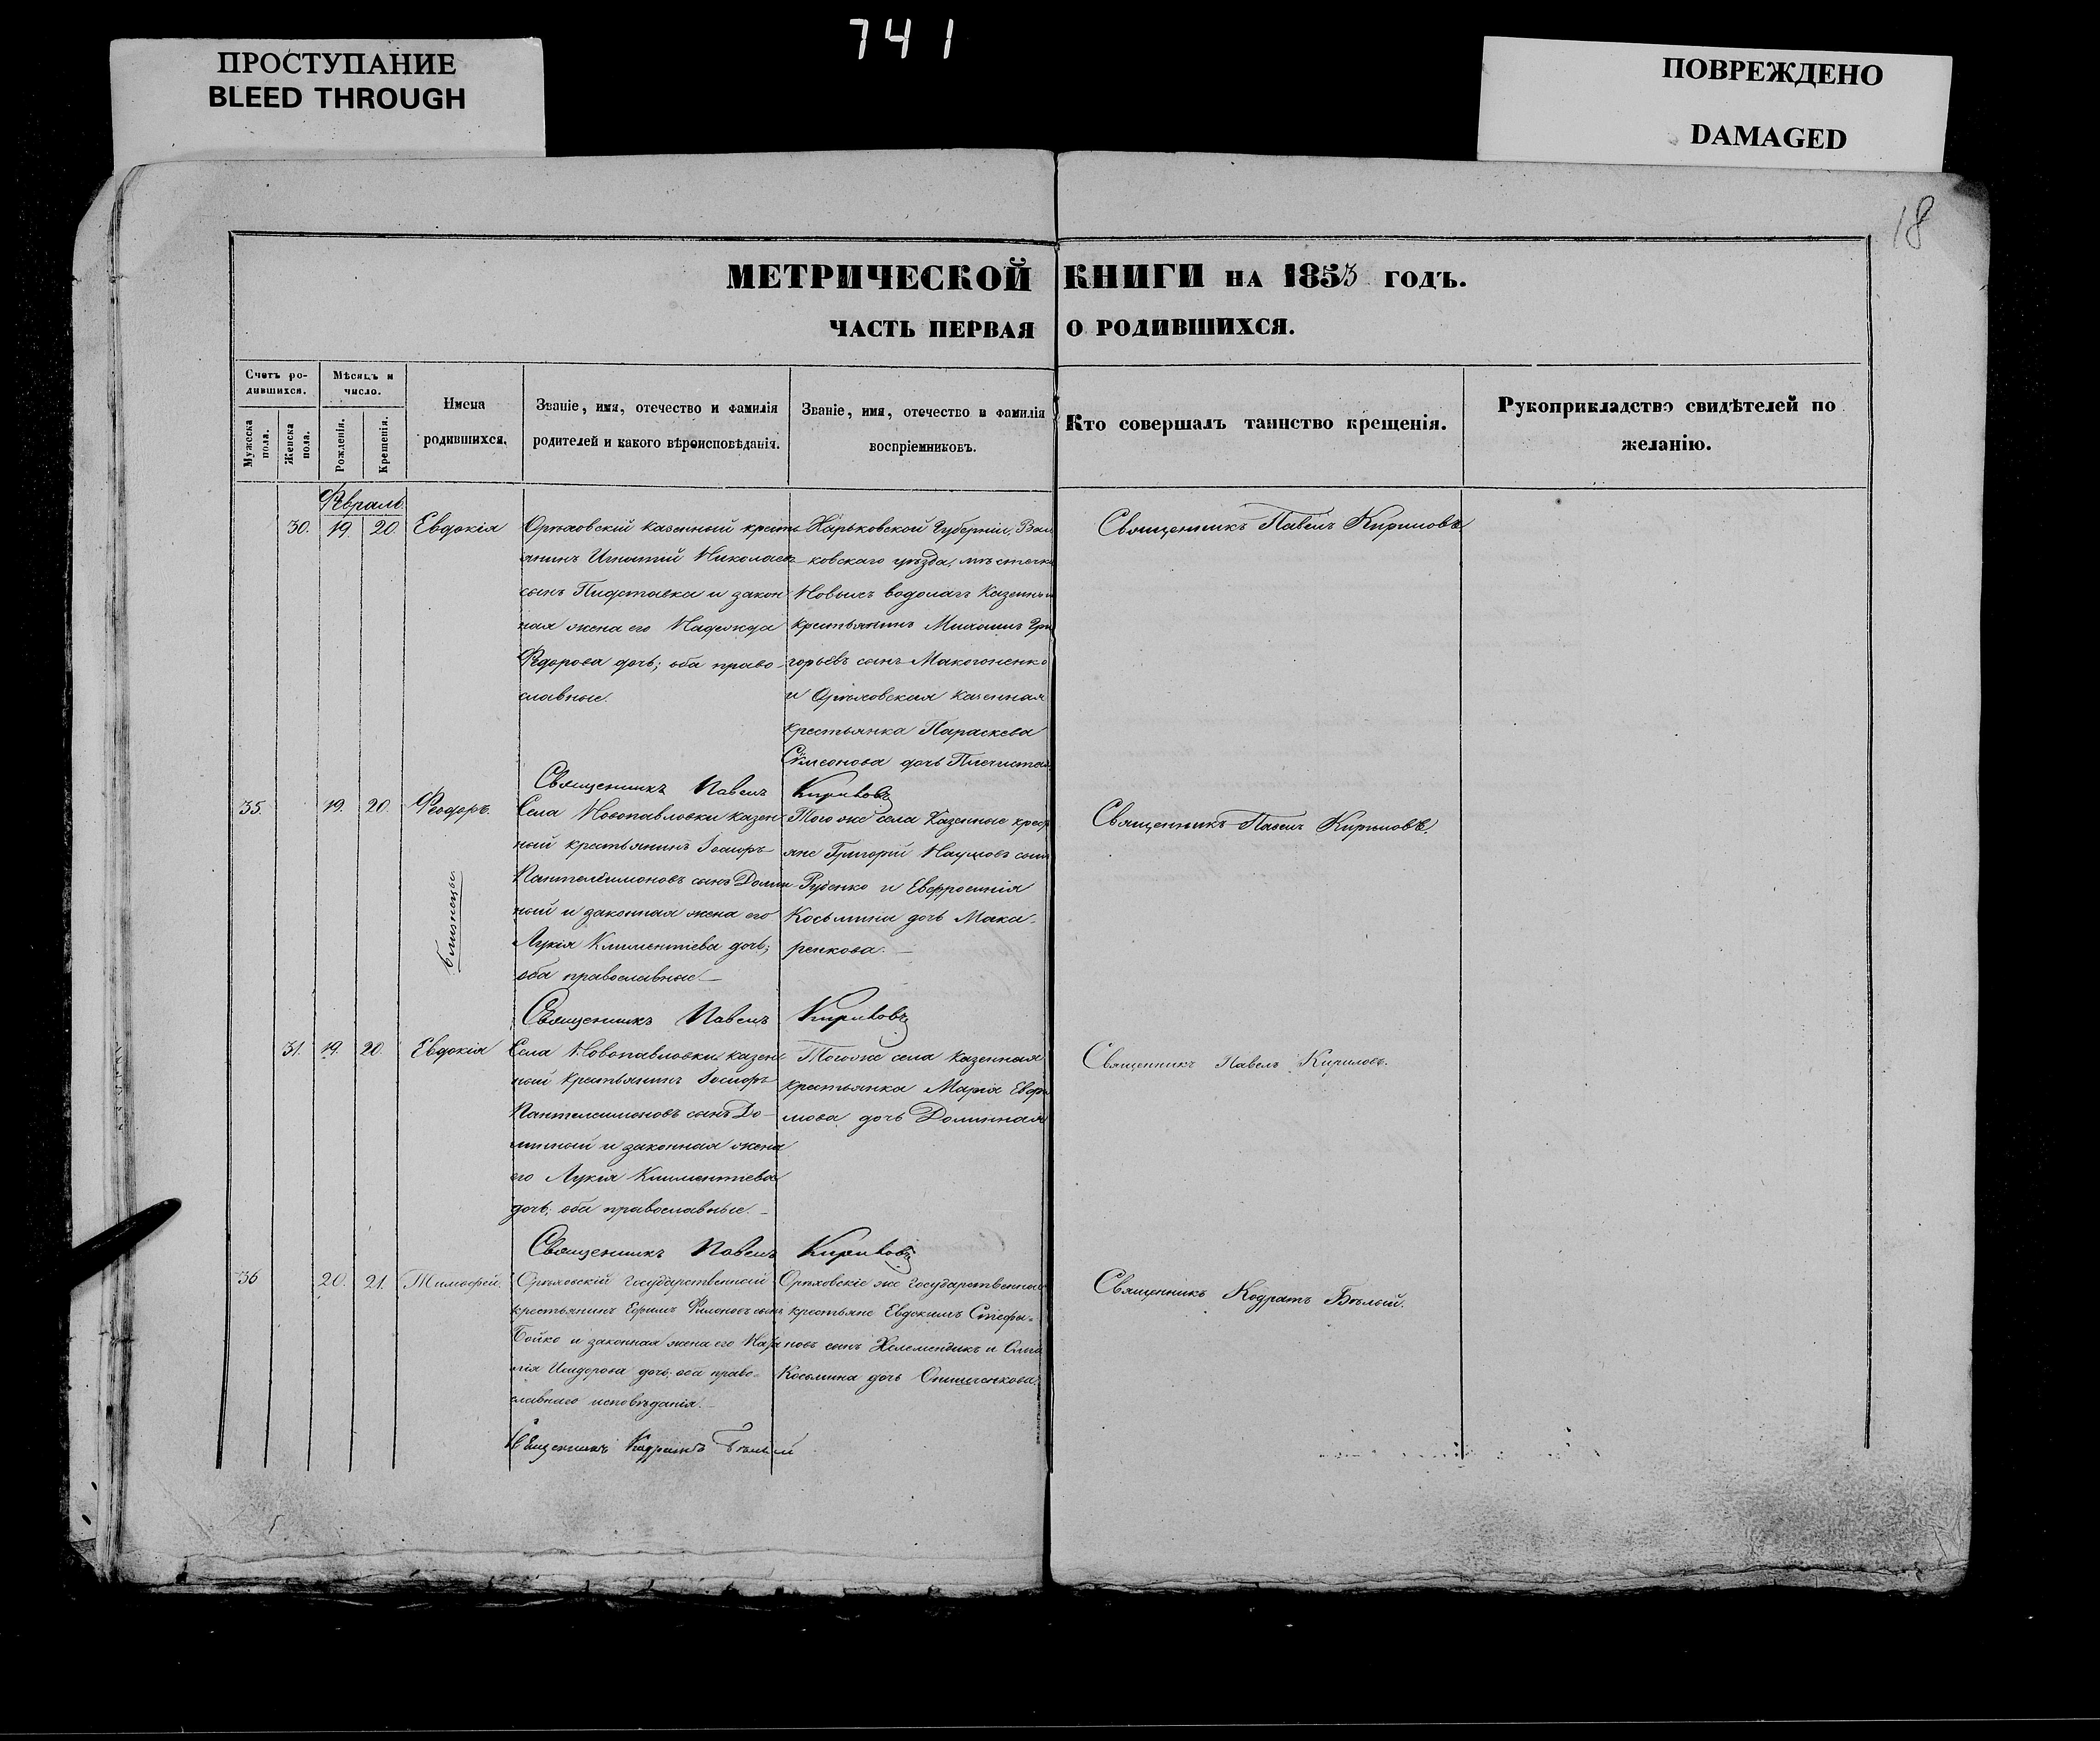 741
ПРОСТУПАНИЕ
BLEED THROUGH
ПОВРЕЖДЕНО
DAMAGED
18
МЕТРИЧЕСКОЙ КНИГИ НА 1853 ГОДЪ.
ЧАСТЬ ПЕРВАЯ О РОДИВШИХСЯ.
Счетъ ро-
дившихся.
Мужеска
пола.
Женска
пола.
Мѣсяцъ и
число.
Рожденія.
Крещенія.
Имена
родившихся.
Званіе, имя, отечество и фамилія
родителей и какого вѣроисповѣданія.
Званіе, имя, отечество и фамилія
воспріемниковъ.
Кто совершалъ таинство крещенія.
Рукоприкладство свидѣтелей по
желанію.
Февраль
30. 19. 20. Евдокія
Орѣховскій казенный кресть
янинъ Игнатій Николаевъ
сынъ Пидставка и закон
ная жена его Надежда
Федорова дочь; оба право-
славные.
Харьковской Губерніи, Вал
ковскаго уѣзда, мѣстечка
Новыхъ водолагъ Казенный
крестьянинъ Михаилъ Гри
горьевъ сынъ Макогоненко
и Орѣховская казенная
крестьянка Параскева
Сѵмеонова дочь
Священникъ Павелъ Кириловъ
Священникъ Павелъ Кириловъ
35. 19. 20. Феодоръ.
близнецы
Села Новопавловки казен
ный крестьянинъ
Пантелеимоновъ сынъ Долин
ный и законная жена его
Лукія Климентіева дочь;
оба православные.
Того же села Казенные крест
яне Григорій Наумовъ сынъ
Руденко и Евфросинія
Косьмина дочь Мака-
ренкова.
Священникъ Павелъ Кириловъ.
Священникъ Павелъ Кириловъ
31. 19. 20. Евдокія
Села Новопавловки казен
ный крестьянинъ
Пантелеимоновъ сынъ До-
линный и законная жена
его Лукія Климентіева
дочь; оба православные.
Того же села казенная
крестьянка Марія Ефри
мова дочь Долинная
Священникъ Павелъ Кириловъ.
Священникъ Павелъ Кириловъ
36 20. 21. Тимофей.
Орѣховскій Государственный
крестьянинъ Ефимъ Филоновъ сынъ
Бойко и законная жена его
Исидорова дочь; оба право-
славнаго исповѣданія.
Орѣховскіе же Государственные
крестьяне Евдокимъ Стефа-
новъ сынъ Желемендикъ и Ольга
Косьмина дочь Онищенкова.
Священникъ Кодратъ Бѣлый.
Священникъ Кодратъ Бѣлый